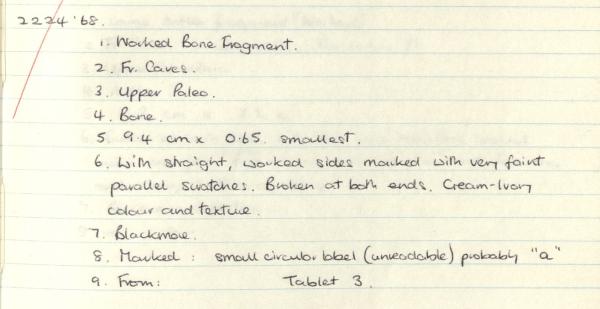 2224'68.
1. Worked Bone Fragment.
2. Fr. Caves.
3. Upper Paleo.
4. Bone.
5 9.4 cm x 0.65. smallest.
6. With straight, worked sides marked with very faint
parallel scratches. Broken at both ends. Cream-Ivory
colour and texture.
7. Blackmore.
8. Marked : small circular label (unreadable) probably "a"
9. From: Tablet 3.